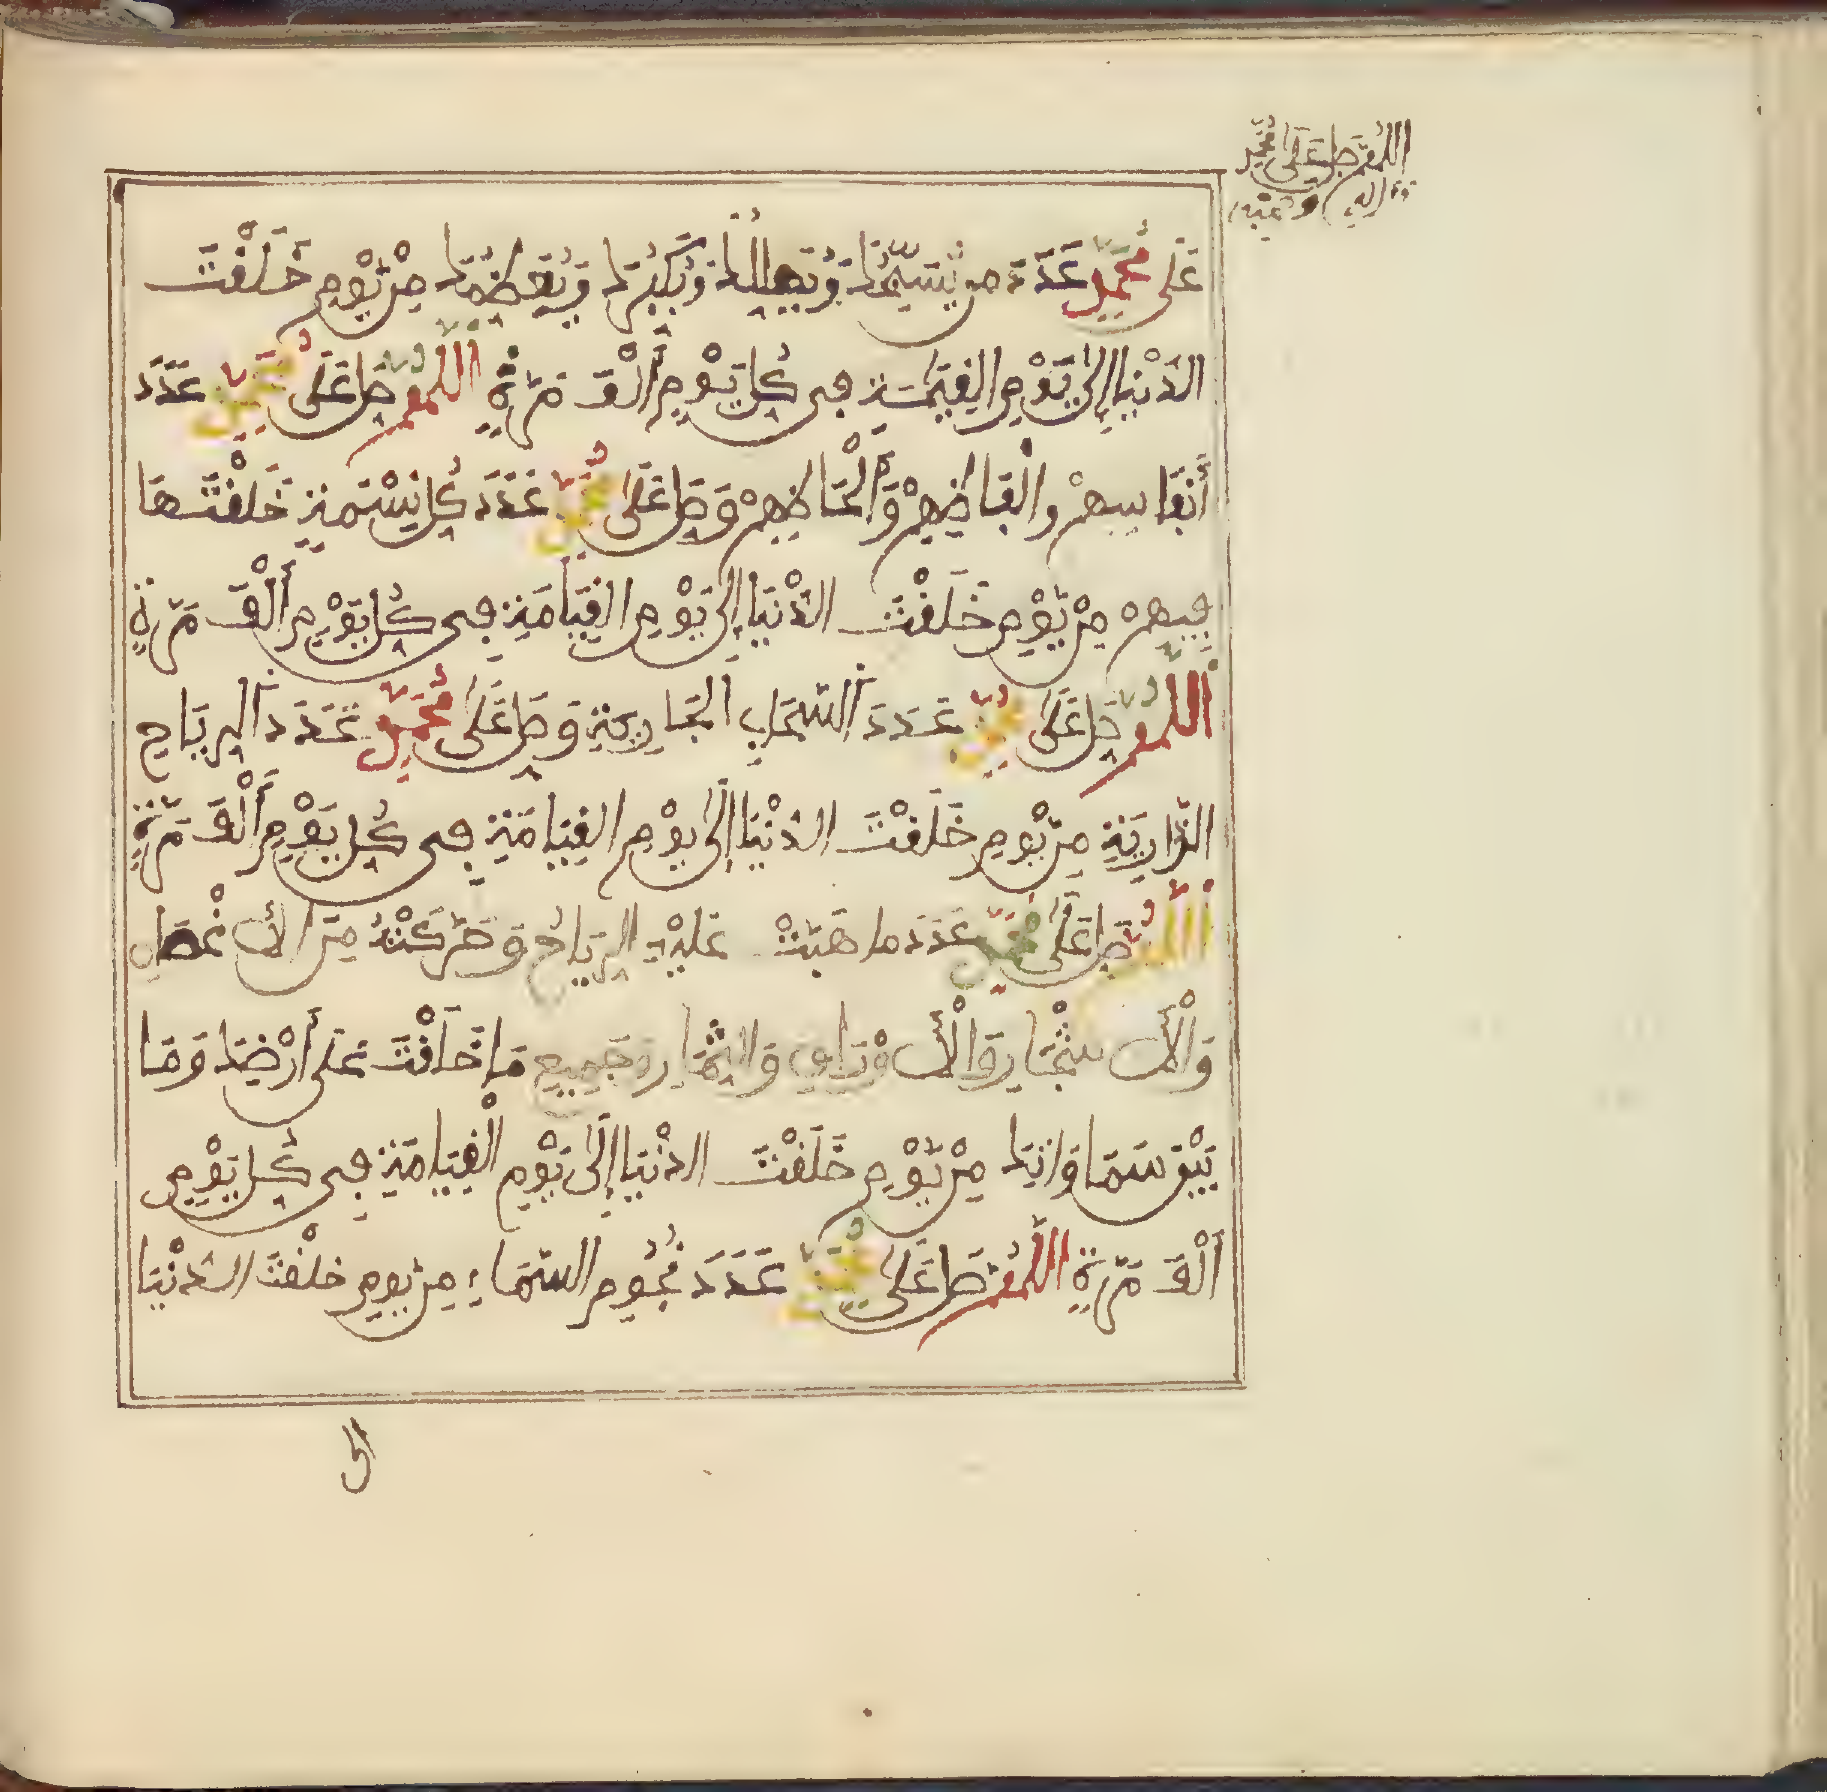 اللهم صل على محمد
واله وصحبه
عَلَى مُحَمَّدٍ عَدَدَ من يُسَبِّحُكَ وَيُهَلِّلُكَ وَيُكَبِّرُكَ وَيُعَظِّمُكَ مِنْ يَوْمِ خَلَقْتَ
الدُّنْيَا إِلَى يَوْمِ الْقِيَمَةِ فِى كُلِّ يَوْمٍ أَلْفَ مَرَّةٍ اللَّهُمَّ صَلِّ عَلَى مُحَمَّدٍ عَدَدَ
أَنْفَاسِهِمْ وَالْفَاظِهِمْ وَأَلْحَاظِهِمْ وَصَلِّ عَلَى مُحَمَّدٍ عَدَدَ كُلِّ نَسَمَةٍ خَلَقْتَهَا
فِيهِمْ مِنْ يَوْمِ خَلَقْتَ الدُّنْيَا إِلَى يَوْمِ الْقِيَامَةِ فِى كُلِّ يَوْمٍ أَلْفَ مَرَّةٍ
اللَّهُمَّ صَلِّ عَلَى مُحَمَّدٍ عَدَدَ السَّحَابِ الْجَارِيَةِ وَصَلِّ عَلَى مُحَمَّدٍ عَدَدَ الرِّيَاحِ
الذَّارِيَةِ مِنْ يَوْمِ خَلَقْتَ الدُّنْيَا إِلَى يَوْمِ الْقِيَامَةِ فِى كُلِّ يَوْمٍ أَلْفَ مَرَّةٍ
اللَّهُمَّ صَلِّ عَلَى مُحَمَّدٍ عَدَدَ ما هَبَّتْ عَلَيْهِ الرِّيَاحُ وَحَرَّكَتْهُ مِنَ الْأَغْصَانِ
وَالْأَشْجَارِ وَالْأَوْرَاقِ وَالثِّمَارِ وَجَمِيعِ مَا خَلَقْتَ عَلَى أَرْضِكَ وَمَا
بَيْنَ سَمَاوَاتِكَ مِنْ يَوْمِ خَلَقْتَ الدُّنْيَا إِلَى يَوْمِ الْقِيَامَةِ فِى كُلِّ يَوْمٍ
أَلْفَ مَرَّةٍ اللَّهُمَّ صَلِّ عَلَى مُحَمَّدٍ عَدَدَ نُجُومِ السَّمَاءِ مِنْ يَوْمِ خلَقْتَ الدُّنْيَا
الى